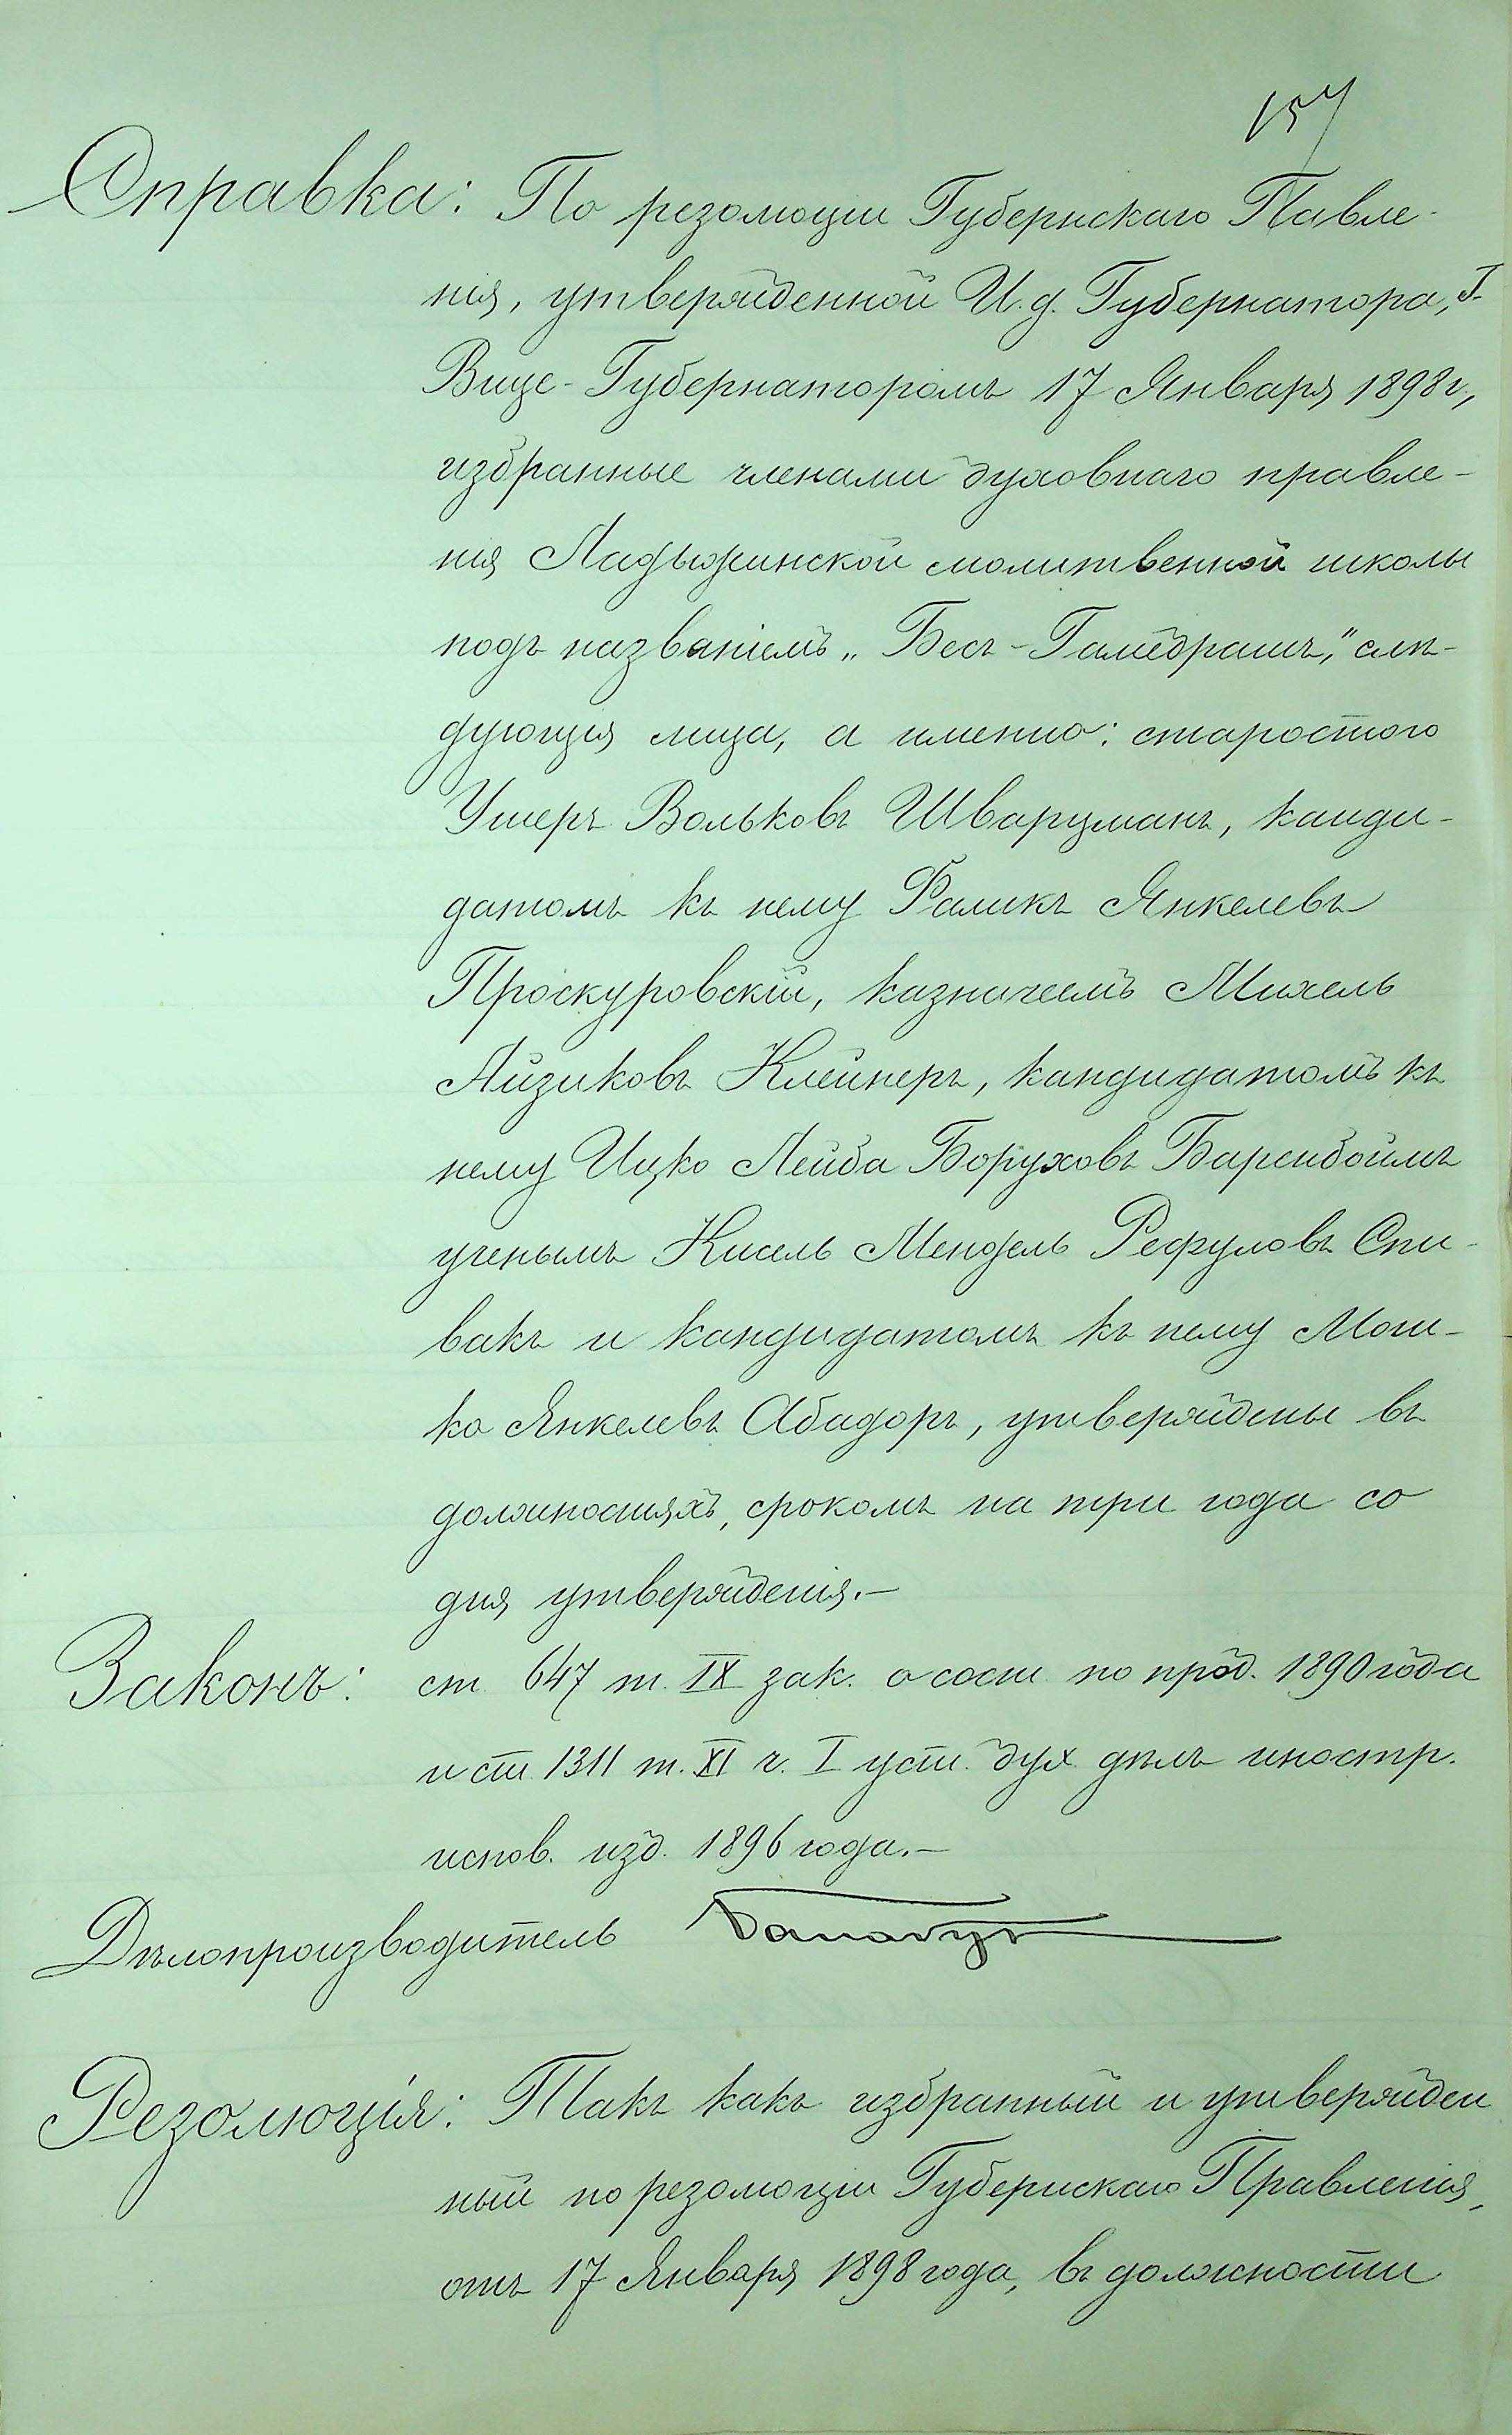 157
Справка: По резолюціи Губернскаго Павле-
нія, утвержденной И. д. Губернатора, Г.
Вице-Губернаторомъ 17 Января 1898 г.,
избранные членами духовнаго правле-
нія Ладыжинской молитвенной школы
подъ названіемъ „Бесъ-Гамедрашъ," слѣ-
дующія лица, а именно: старостою
Ушеръ Вольковъ Шварцманъ, канди-
датомъ къ нему Фаликъ Янкелевъ
Проскуровскій, казначеемъ Михель
Айзиковъ Клейнеръ, кандидатомъ къ
нему Ицко Лейба Боруховъ Баренбоймъ
ученымъ Кисель Мендель Рефуловъ Спи-
вакъ и кандидатомъ къ нему Мош-
ко Янкелевъ Абадоръ, утверждены въ
должностяхъ, срокомъ на три года со
дня утвержденія.—
Законъ: ст. 647 т. IX зак. о сост. по прод. 1890 года
и ст. 1311 т. XI ч. I уст. дух. дѣлъ иностр.
испов. изд. 1896 года.—
Дѣлопроизводитель
Резолюція: Такъ какъ избранный и утвержден
ный по резолюціи Губернскаго Правленія,
отъ 17 Января 1898 года, въ должности